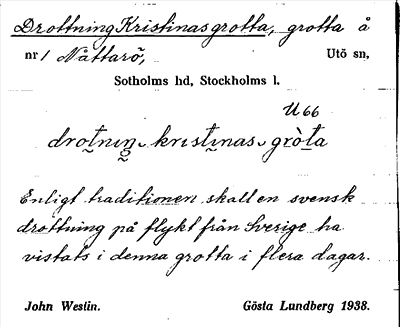 Drottning Kristinas grotta, grotta å
nr 1 Nåttarö, Utö sn,
Sotholms hd, Stockholms l.
U 66
drotning kristinas gròta
Enligt traditionen skall en svensk
drottning på flykt från Sverige ha
vistats i denna grotta i flera dagar.
John Westin. Gösta Lundberg 1938.